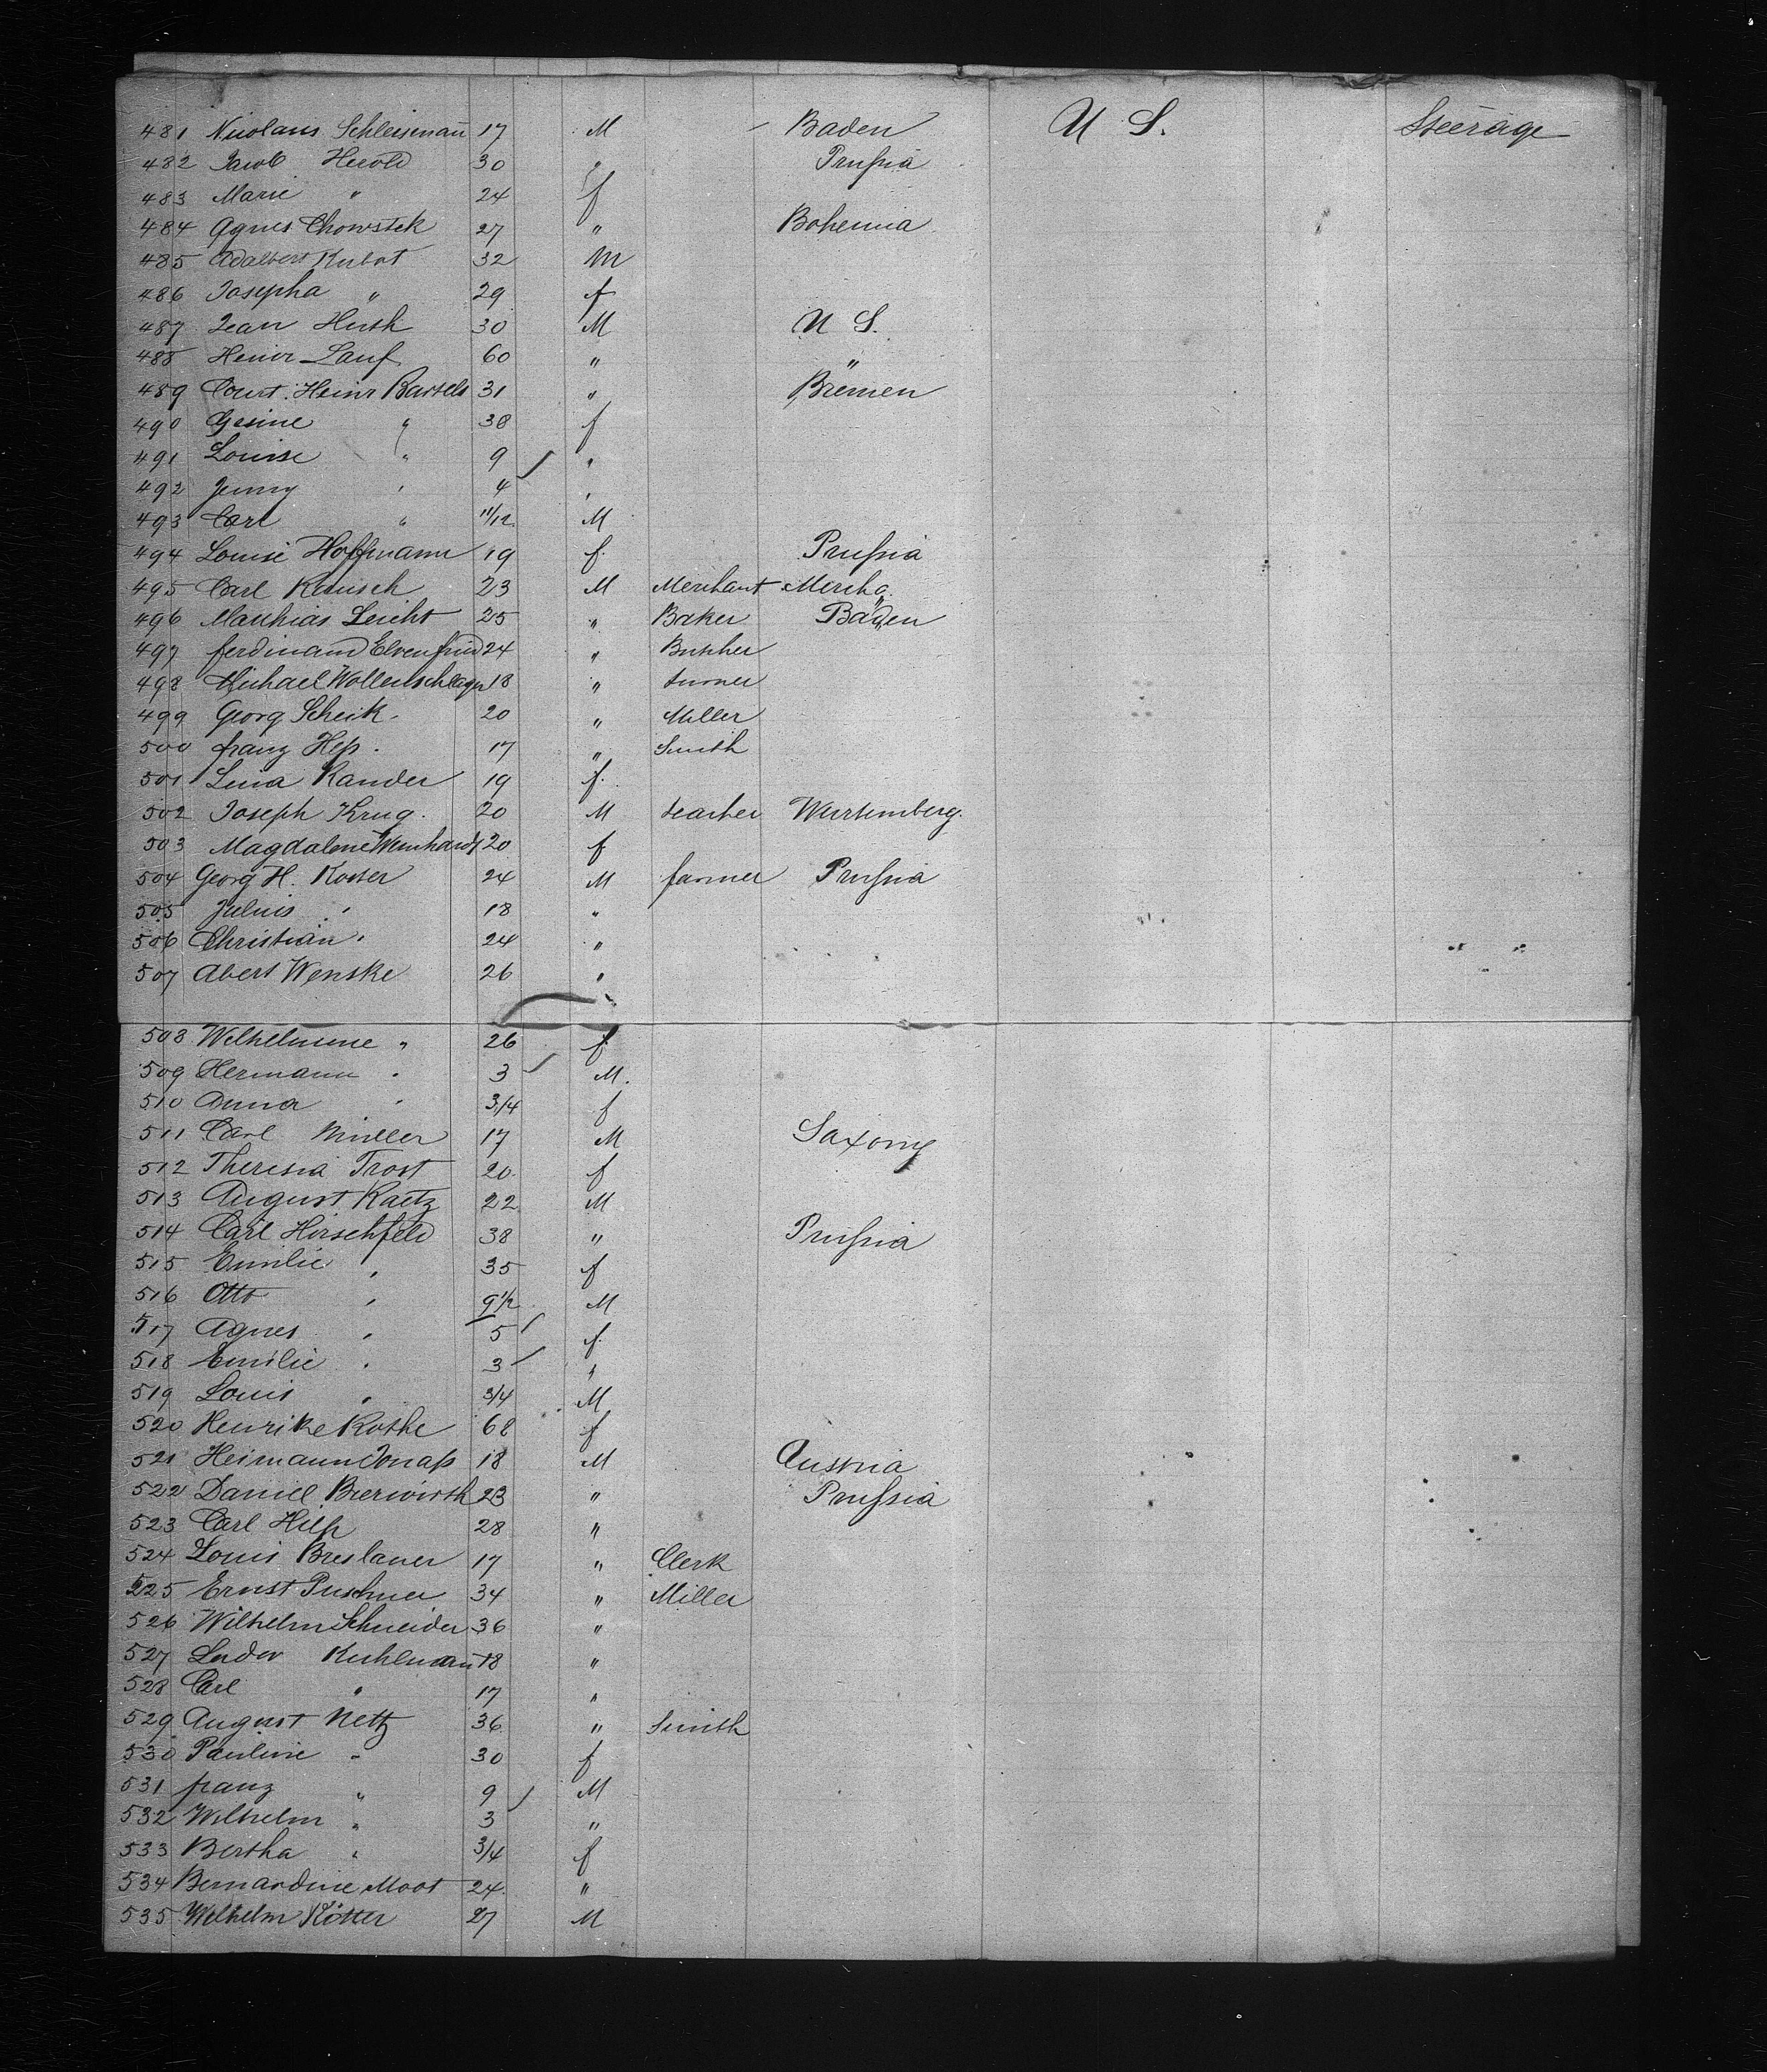 481 Nicolaus Schleisenaū 17 M Baden U S. Steerage
482 Jacob Herold 30 " Prußia
483 Marie " 24 f
484 Agnes Chowstek 27 " Bohemia
485 Adalbert Kubat 32 M
486 Josepha " 29 f
487 Jean Huth 30 M U S.
488 Heinr Lauf 60 " "
489 Court. Heinr Bartels 31 " Bremen
490 Gesine " 38 f
491 Louise " 9 "
492 Jenny " 4 "
493 Carl " 11/12 M
494 Louise Hoffmann 19 f. Prußia
495 Carl 23 M Merchant
496 Matthias Leicht 25 " Baker Baden
497 ferdinand 24 "
498 Michael Wollenschlager 18 " turner
499 Georg Scheik. 20 " Miller
500 franz Heß. 17 " Smith
501 Lina Kander 19 f.
502 Joseph Krug. 20 M teacher Wurtemberg.
503 Magdalene 20 f
504 Georg H. Koster 24 M farmer Prußia
505 Julius " 18 "
506 Christian " 24 "
507 Abert Wenske 26 "
508 Wilhelmine " 26 f
509 Hermann " 3 M.
510 Anna " 3/4 f
511 Carl Müller 17 M Saxony
512 Theresia Trost 20. f
513 August Raetz 22 M
514 Carl Hirschfeld 38 " Prußia
515 Emilie " 35 f
516 Otto " 9 1/2 M
517 Agnes " 5 f.
518 Emilie " 3 "
519 Louis " 3/4 M
520 Henrike Kothe 68 f
521 Heimann Jonaß 18 M Austria
522 Daniel Bierwirth 23 " Prußia
523 Carl 28 "
524 Louis Breslauer 17 " Clerk
525 Ernst Puschner 34 " Miller
526 Wilhelm Schneider 36 "
527 Luder Kuhlmann 18 "
528 Carl " 17 "
529 August Netz 36 " Smith
530 Pauline " 30 f
531 franz " 9 M
532 Wilhelm " 3 "
533 Bertha " 3/4 f
534 Bernardine Moot 24. "
535 Wilhelm Kötter 27 M